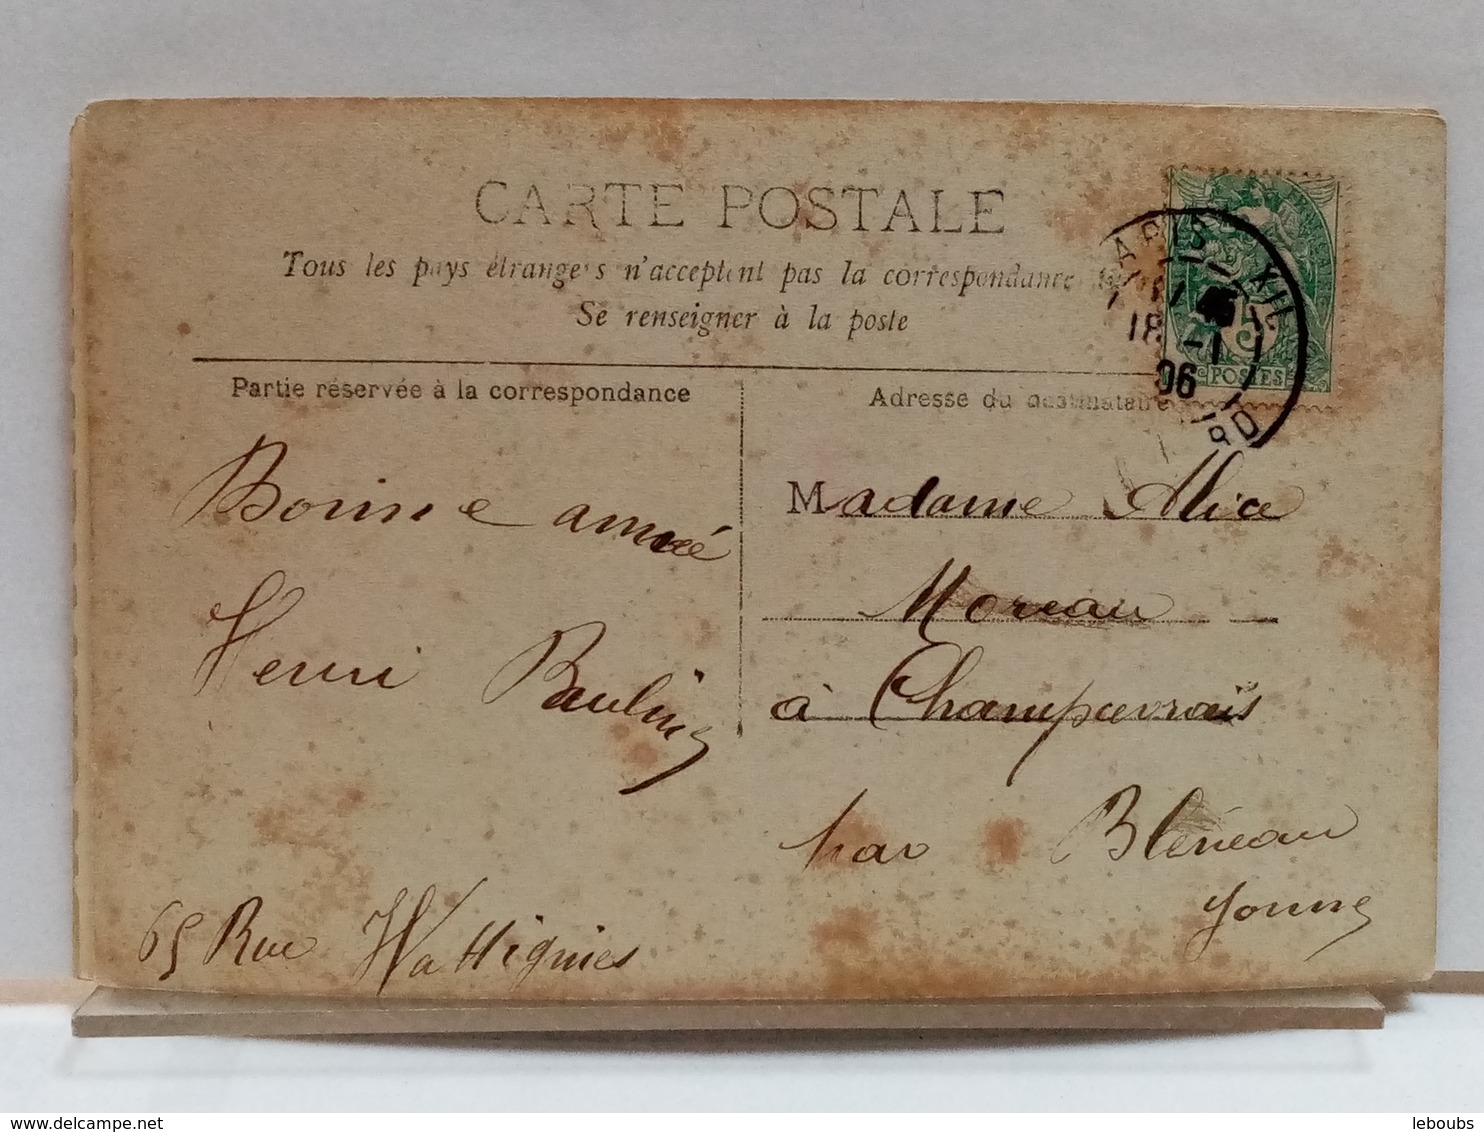 CARTE POSTALE
Tous les pays étrangers n'acceptent pas la correspondance
Se renseigner à la poste
Partie réservée à la correspondance
Adresse du destinataire
PARIS XII
18 -1
06
5
POSTES
Bonne année
Henri Bauling
65 Rue Wattignies
Madame Alice
Moreau
à Champcevrais
par Bléneau
Yonne
delcampe.net
leboubs